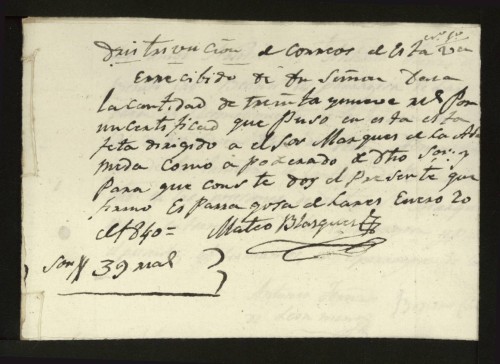 Distrivucion de correos de esta va
E rrecibido de Dn Simon Daza
la cantidad de treinta y nueve rs Por
un certificad que puso en esta esta
feta dirigido a el Sor Marques de la Al
meida como apoderado de dho Sor y
Para que conste doy el presente que
firmo Esparragosa de Lares Enero 20
de 1840= Mateo Blasquez
Son 39 rrs